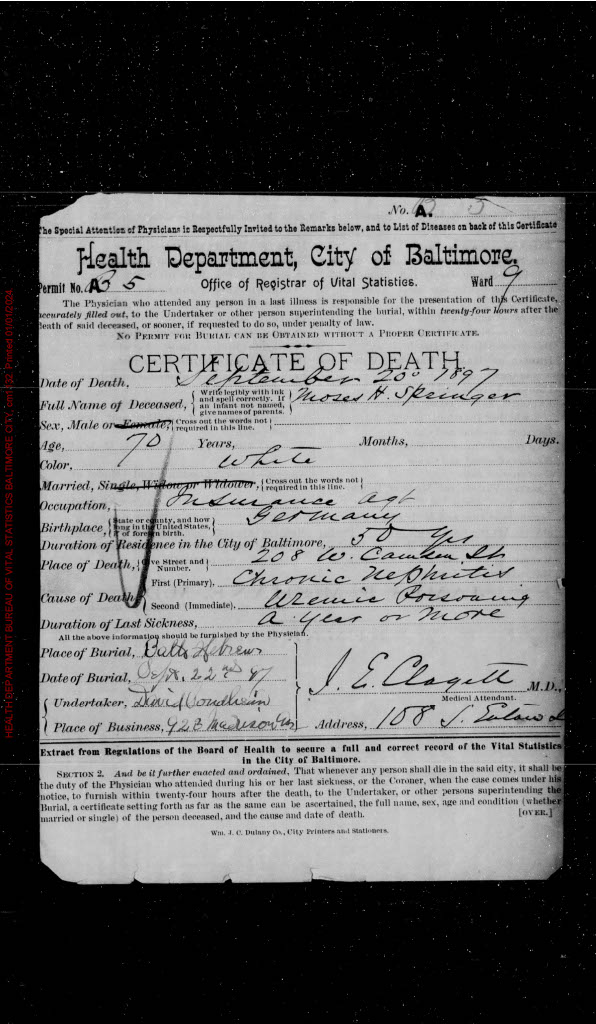 No. A. B 5
The Special Attention of Physicians is Respectfully Invited to the Remarks below, and to List of Diseases on back of this Certificate
Health Department, City of Baltimore.
Permit No. A B 5 Office of Registrar of Vital Statistics. Ward 9
The Physician who attended any person in a last illness is responsible for the presentation of this Certificate,
accurately filled out, to the Undertaker or other person superintending the burial, within twenty-four hours after the
death of said deceased, or sooner, if requested to do so, under penalty of law.
NO PERMIT FOR BURIAL CAN BE OBTAINED WITHOUT A PROPER CERTIFICATE.
CERTIFICATE OF DEATH.
Date of Death, September 20 1897
Full Name of Deceased, { Write legibly with ink and spell correctly. If an infant not named, give names of parents. } Moses H. Springer
Sex, Male or Female, { Cross out the words not required in this line. }
Age, 70 Years, Months, Days.
Color, White
Married, Single, Widow or Widower, { Cross out the words not required in this line. }
Occupation, Insurance Agt
Birthplace, { State or county, and how long in the United States, if of foreign birth. } Germany
Duration of Residence in the City of Baltimore, 50 yrs
Place of Death, { Give Street and Number. } 208 W. Camden St
Cause of Death, { First (Primary), Chronic Nephritis
Second (Immediate), Uremic Poisoning
Duration of Last Sickness, A year or more
All the above information should be furnished by the Physician.
Place of Burial, Balto Hebrew
Date of Burial, Sept. 22nd 97
Undertaker, David
Place of Business, 928 Madison Av
J. E. Clagett M.D.,
Medical Attendant.
Address, 108 S. Eutaw
Extract from Regulations of the Board of Health to secure a full and correct record of the Vital Statistics
in the City of Baltimore.
SECTION 2. And be it further enacted and ordained, That whenever any person shall die in the said city, it shall be
the duty of the Physician who attended during his or her last sickness, or the Coroner, when the case comes under his
notice, to furnish within twenty-four hours after the death, to the Undertaker, or other persons superintending the
Burial, a certificate setting forth as far as the same can be ascertained, the full name, sex, age and condition (whether
married or single) of the person deceased, and the cause and date of death. [OVER.]
Wm. J. C. Dulany Co., City Printers and Stationers.